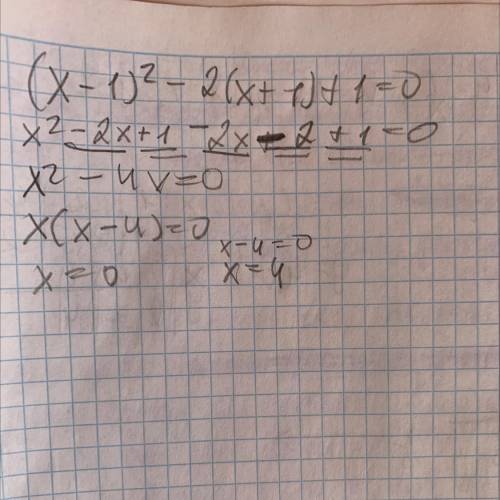 (x-1)² - 2(x+1)+1=0
x² - 2x+1 - 2x - 2 + 1 = 0
x² - 4x=0
x(x-4)=0
x-4=0
x=0 x=4